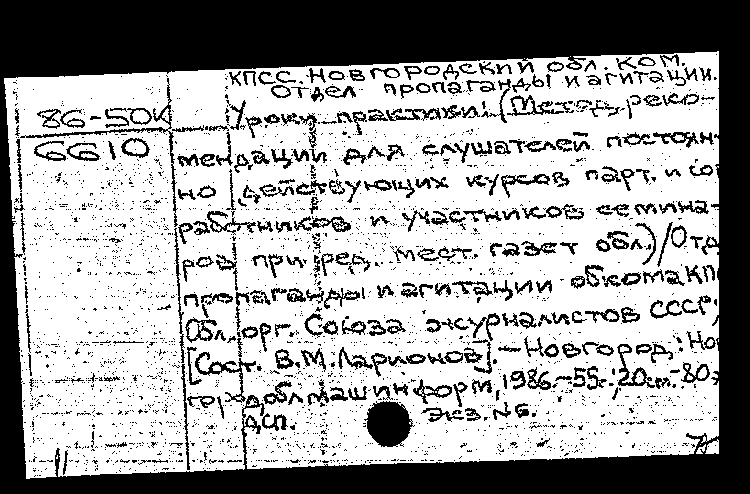 КПСС. Новгородский обл. ком.
Отдел пропаганды и агитации.
86-50К Уроки практики: (Метод. реко-
6610 мендации для слушателей постоян-
но действующих курсов парт. и сов
работников и участников семина-
ров при ред. мест. газет обл.)/Отд
пропаганды и агитации обкома КП
Обл. орг. Союза журналистов СССР;
[Сост. В.М. Ларионов]. - Новгород,: Но
облмашинформ, 1986. - 55 с.; 20 см. - 80 э
ДСП. Экз. №6.
11